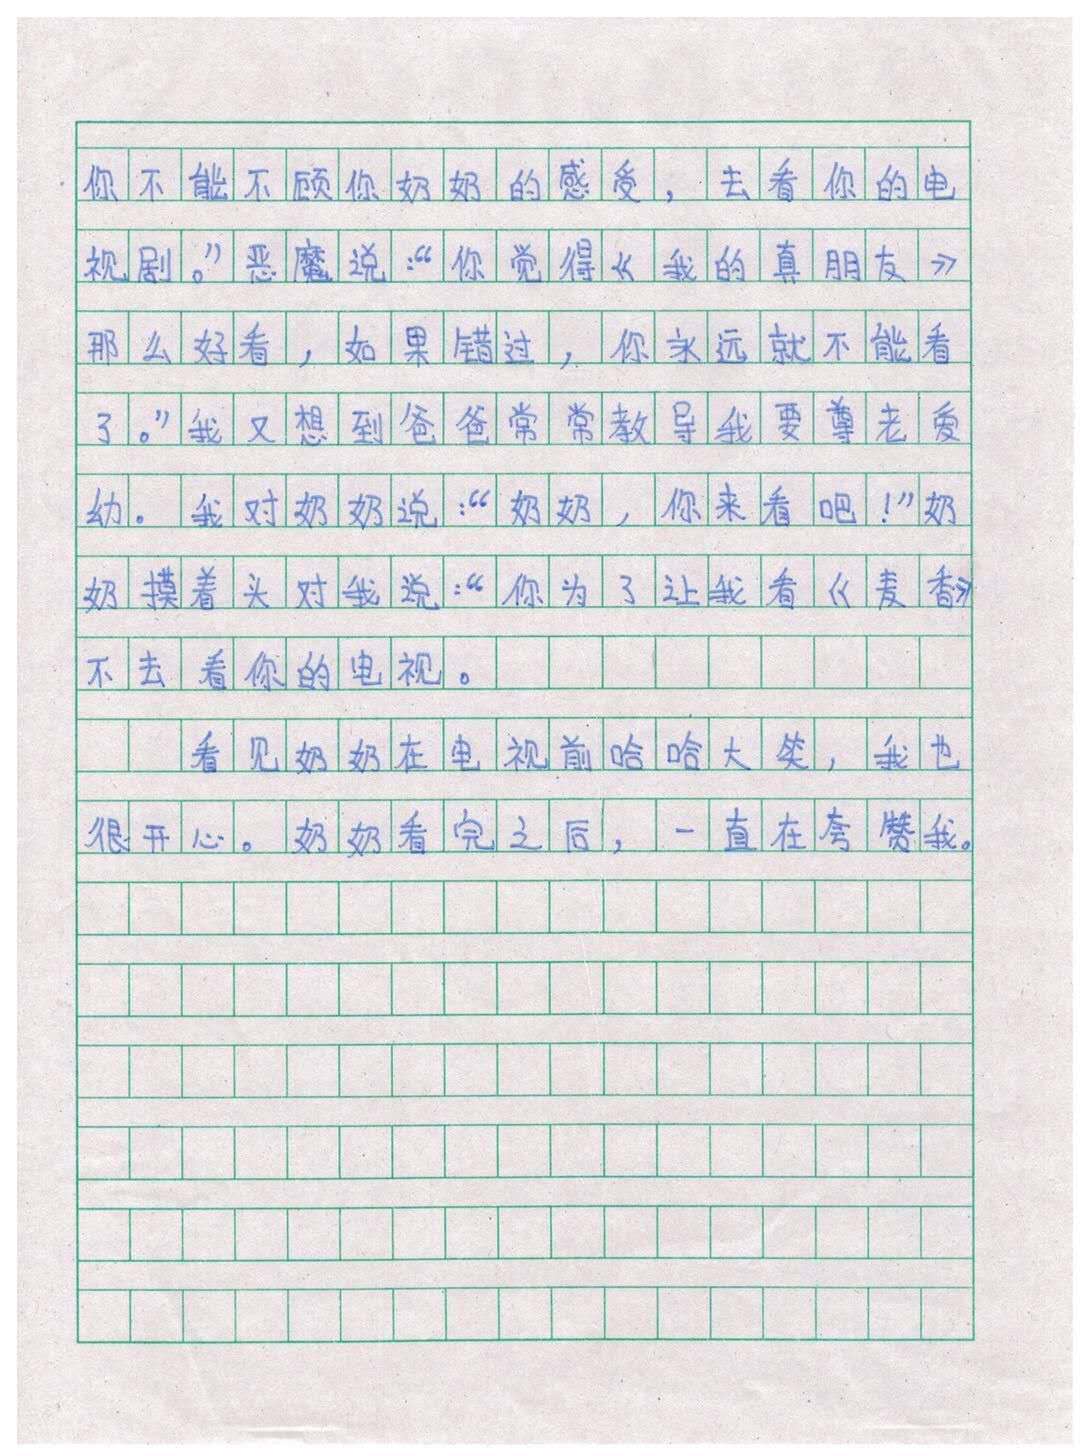 你不能不顾你奶奶的感受，去看你的电
视剧。”恶魔说：“你觉得《我的真朋友》
那么好看，如果错过，你永远就不能看
了。”我又想到爸爸常常教导我要尊老爱
幼。我对奶奶说：“奶奶，你来看吧！”奶
奶摸着头对我说：“你为了让我看《麦香》
不去看你的电视。
看见奶奶在电视前哈哈大笑，我也
很开心。奶奶看完之后，一直在夸赞我。